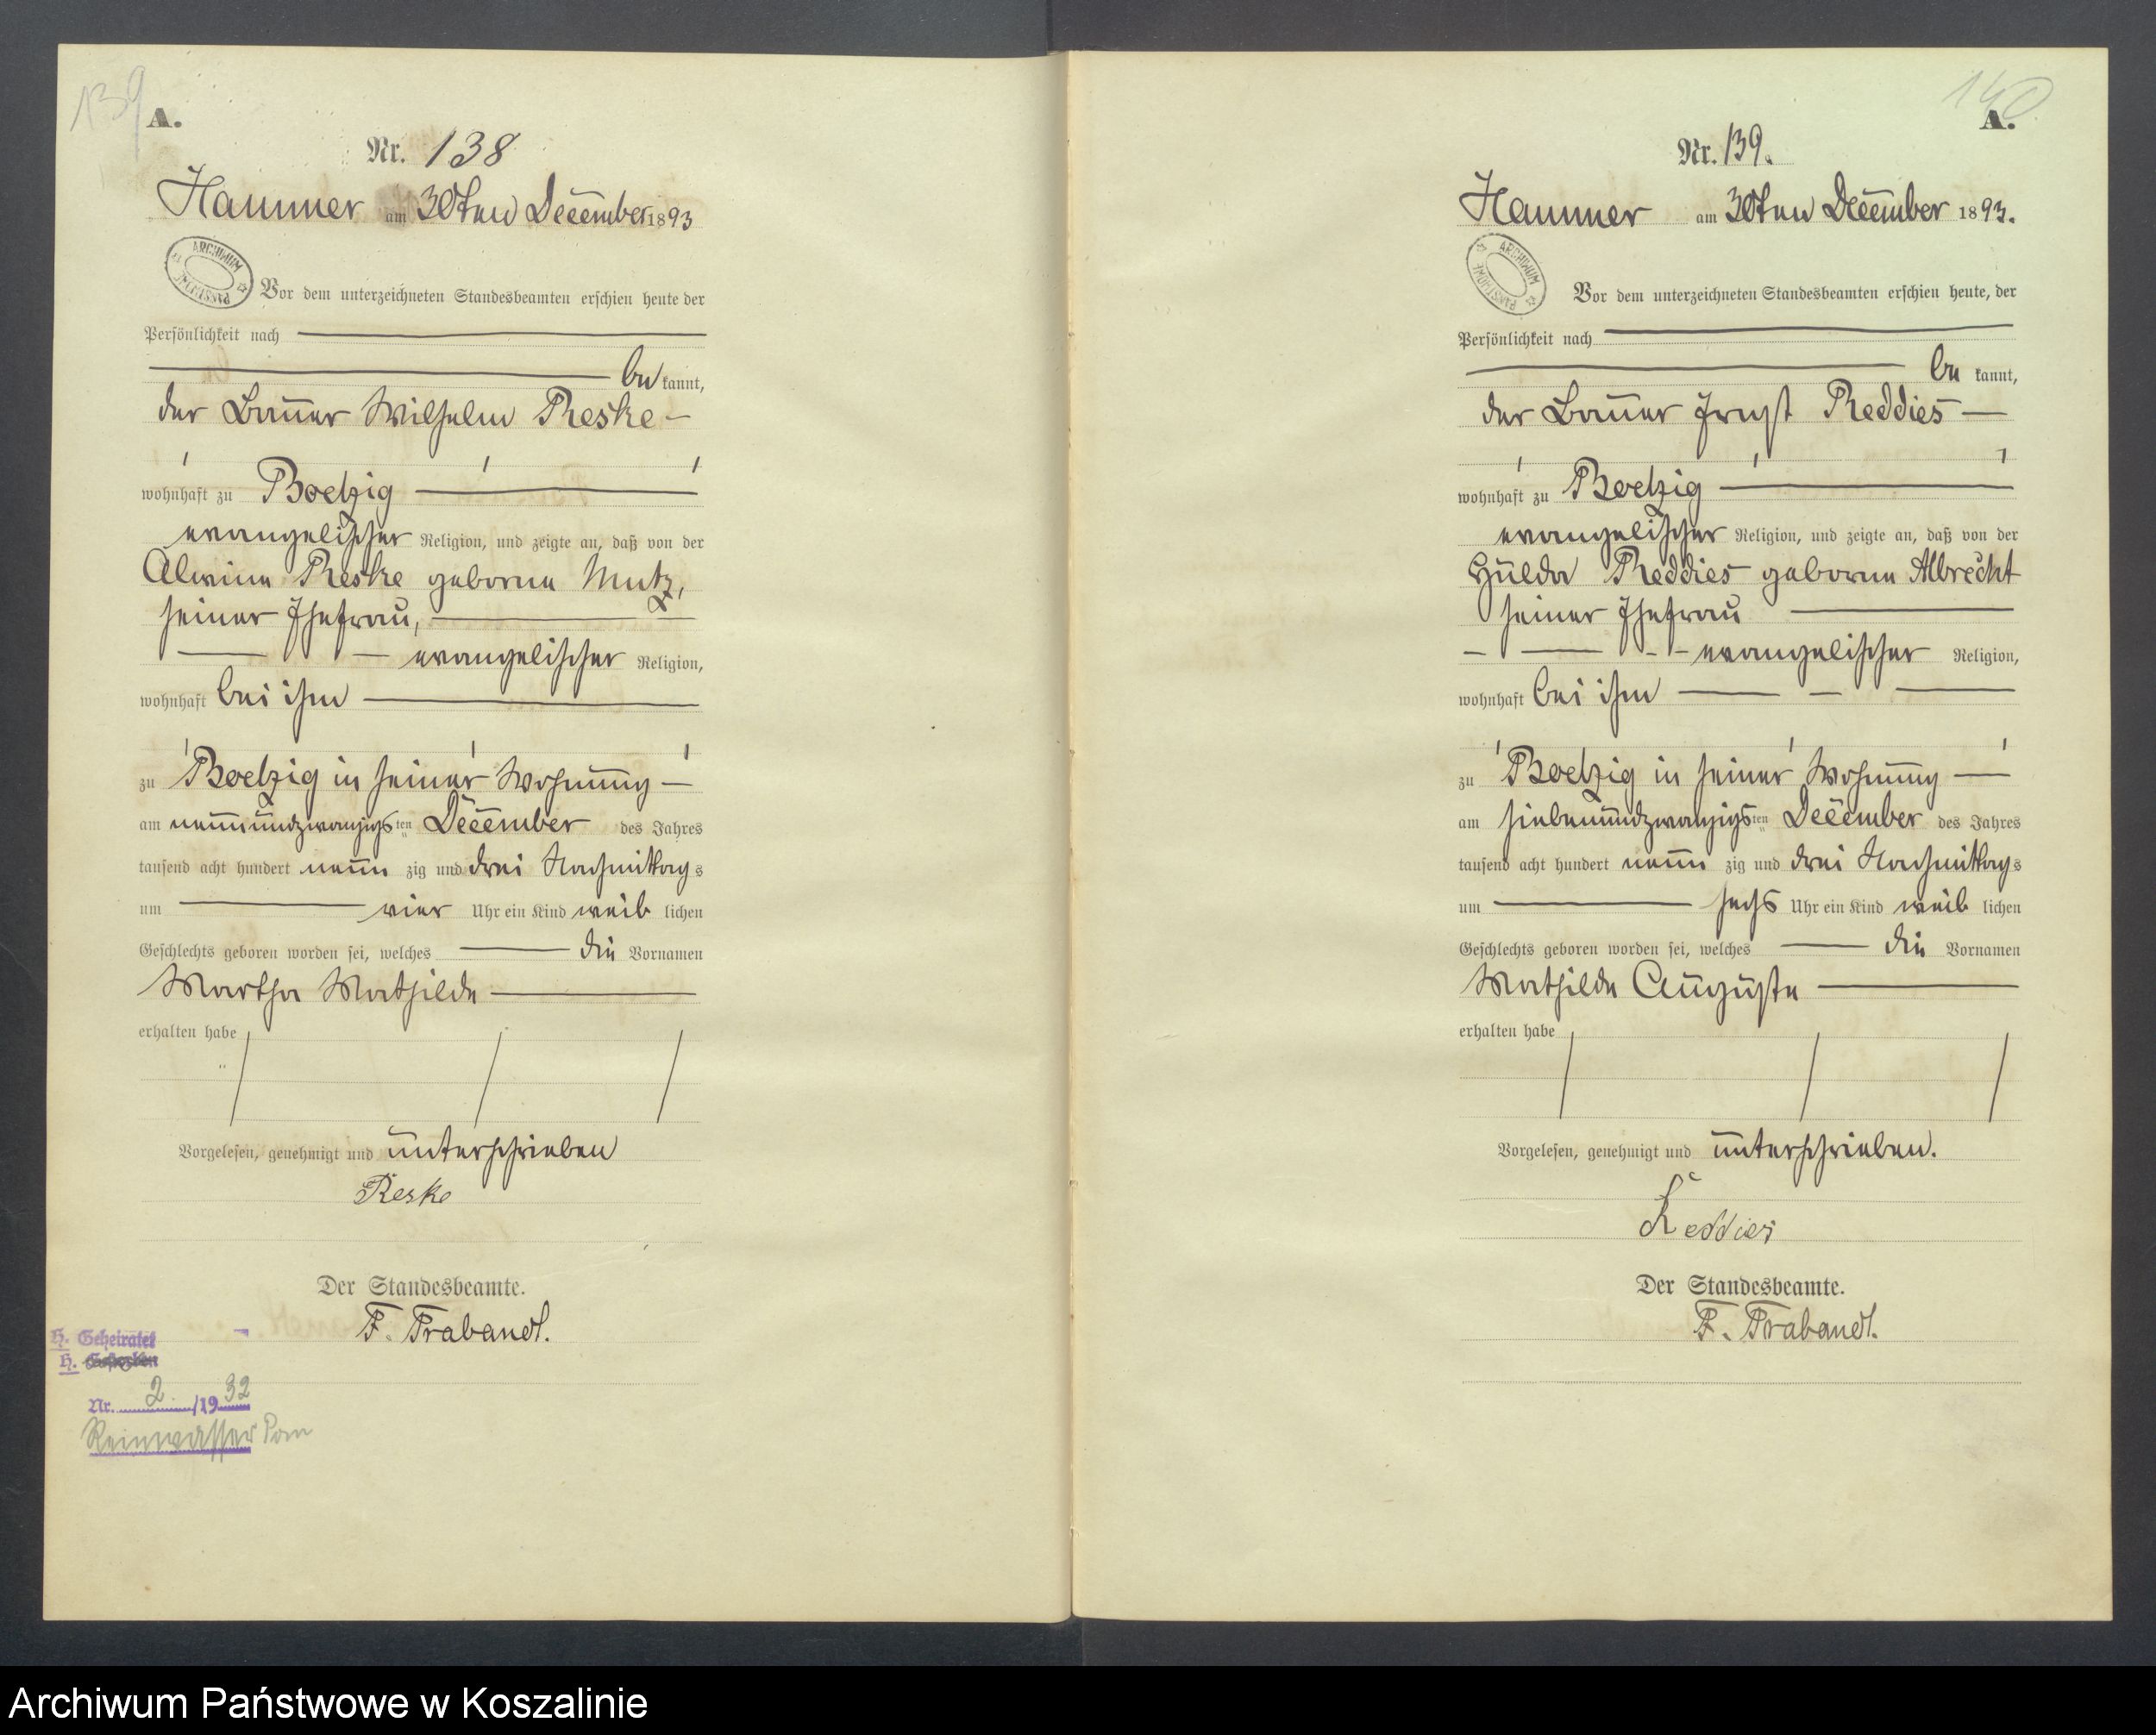 139
A.
Nr. 138
Hammer am 30ten December 1893
ARCHIWUM PAŃSTWOWE
Vor dem unterzeichneten Standesbeamten erschien heute der
Persönlichkeit nach
be kannt,
der Bauer Wilhelm Reske
wohnhaft zu Poetzig
evangelischer Religion, und zeigte an, daß von der
Alwine Reske geborne Mutz,
seiner Ehefrau,
evangelischer Religion,
wohnhaft bei ihm
zu Poetzig in seiner Wohnung
am neunundzwanzigsten December des Jahres
tausend acht hundert neun zig und drei Nachmittags
um vier Uhr ein Kind weib lichen
Geschlechts geboren worden sei, welches die Vornamen
Martha Mathilde
erhalten habe
Vorgelesen, genehmigt und unterschrieben
Reske
Der Standesbeamte.
F. Trabandt.
H. Geheiratet
H. Gestorben
Nr. 2 /1932
Reinwasser Pom
140
A.
Nr. 139.
Hammer am 30ten December 1893.
ARCHIWUM PAŃSTWOWE
Vor dem unterzeichneten Standesbeamten erschien heute, der
Persönlichkeit nach
be kannt,
der Bauer Ernst Reddies
wohnhaft zu Poetzig
evangelischer Religion, und zeigte an, daß von der
Hulda Reddies geborne Albrecht
seiner Ehefrau
evangelischer Religion,
wohnhaft bei ihm
zu Poetzig in seiner Wohnung
am siebenundzwanzigsten December des Jahres
tausend acht hundert neun zig und drei Nachmittags
um sechs Uhr ein Kind weib lichen
Geschlechts geboren worden sei, welches die Vornamen
Mathilde Auguste
erhalten habe
Vorgelesen, genehmigt und unterschrieben.
Reddies
Der Standesbeamte.
F. Trabandt.
Archiwum Państwowe w Koszalinie